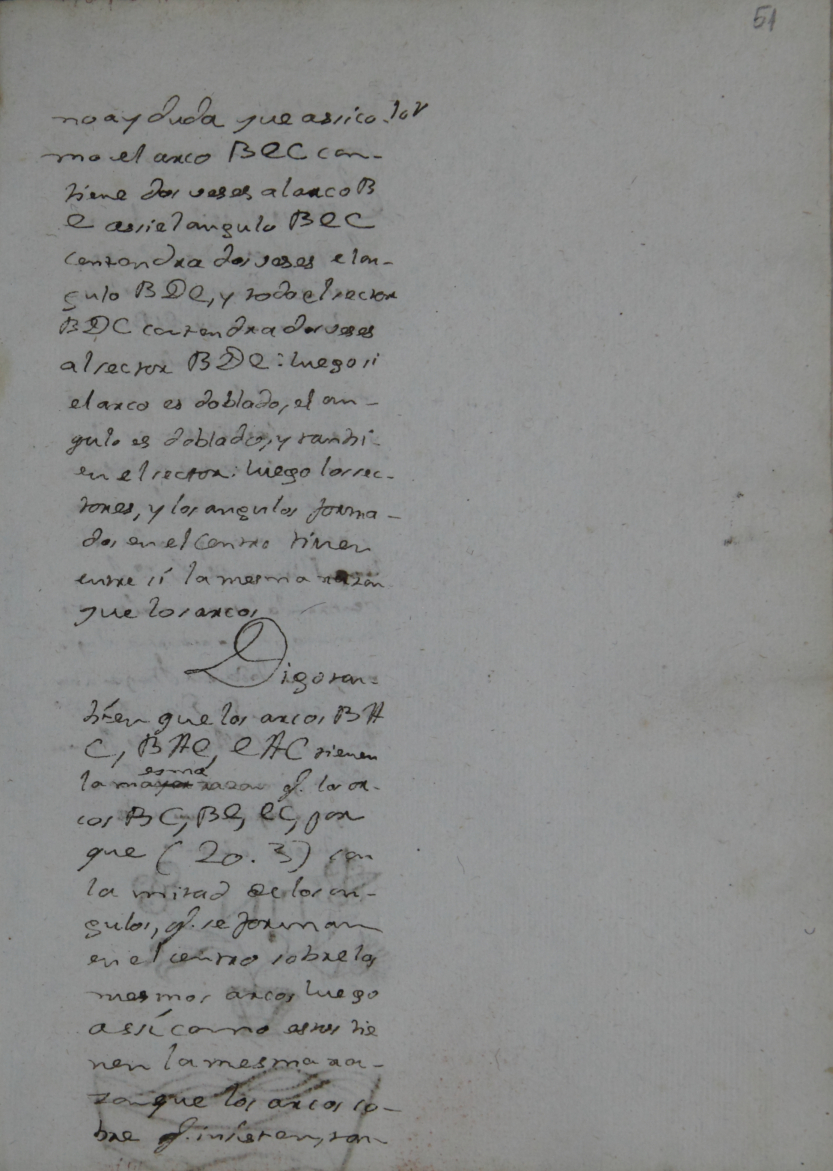 51
no ay duda que assi co-
mo el arco BEC con-
tiene dos veses al arco B
E assi el angulo BEC
contendra dos veses el an-
gulo BDE, y todo el sector
BDC contendra dos veses
al sector BDE: luego si
el arco es doblado, el an-
gulo es doblado, y tambi-
en el sector: luego los sec-
tores, y los angulos forma-
dos en el centro tienen
entre sí la mesma razon
que los arcos
Digo tan-
bien que los arcos BA
C, BAE, EAC tienen
esma
la m razon q. los ar-
cos BC, BE, EC, por
que (20.3) son
la mitad de los an-
gulos, q. se forman
en el centro sobre los
mesmos arcos luego
assí como estos tie
nen la mesma ra-
zon que los arcos so-
bre q. insisten, tan